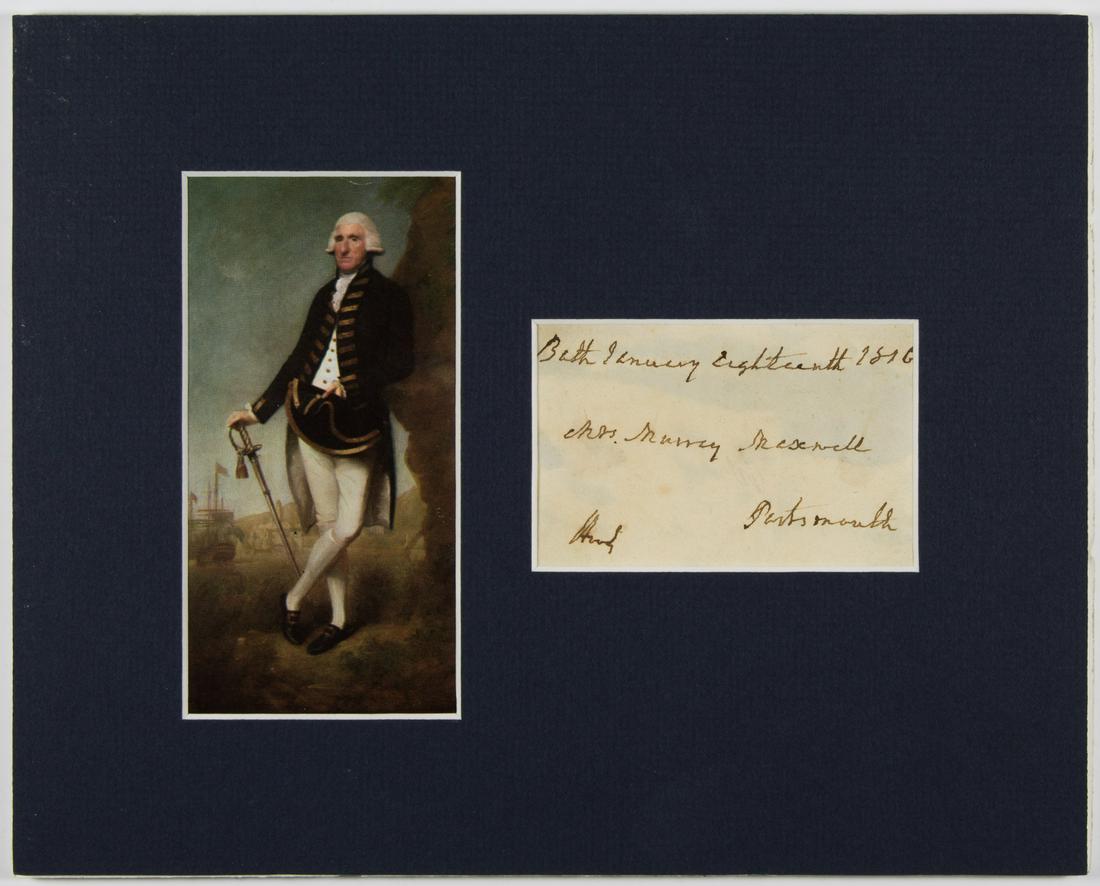 Bath January Eighteenth 1816
Mrs. Murray Maxwell
Portsmouth
Hood